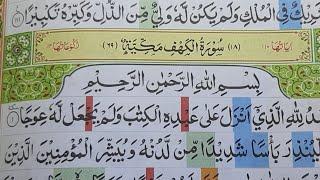 شَرِيْكٌ فِي الْمُلْكِ وَلَمْ يَكُنْ لَّهٗ وَلِيٌّ مِّنَ الذُّلِّ وَكَبِّرْهُ تَكْبِيْرًا ﴿۱۱۱﴾
اٰيَاتُهَا ۱۱۰ (۱۸) سُوْرَةُ الْكَهْفِ مَكِّيَّةٌ (۶۹) رُكُوْعَاتُهَا
بِسْمِ اللّٰهِ الرَّحْمٰنِ الرَّحِيْمِ
لِلّٰهِ الَّذِيْٓ اَنْزَلَ عَلٰى عَبْدِهِ الْكِتٰبَ وَلَمْ يَجْعَلْ لَّهٗ عِوَجًا
لِّيُنْذِرَ بَاْسًا شَدِيْدًا مِّنْ لَّدُنْهُ وَيُبَشِّرَ الْمُؤْمِنِيْنَ الَّذِيْنَ